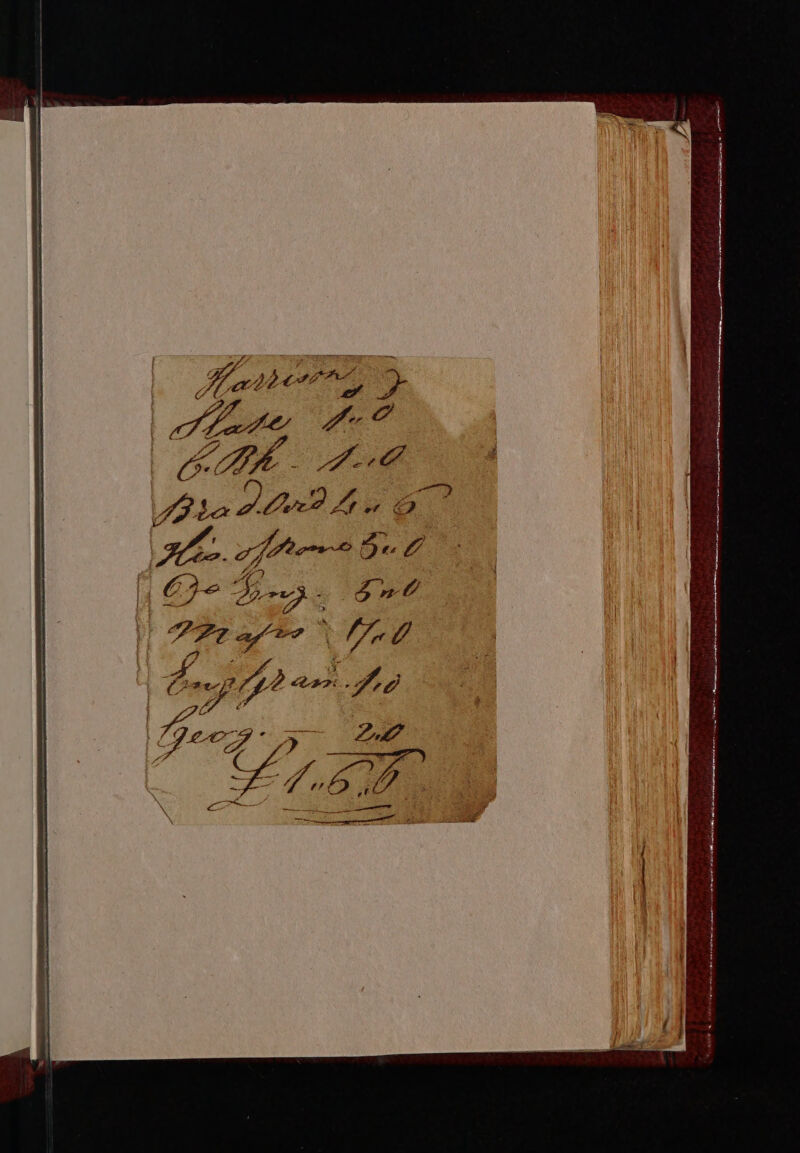 Harrison
s d
Slate 1 " 0
C. Bk - 1 " 0
Brad. Ovid 4 " 6
His. of Rome 5 " 0
Do Eng. 5 " 0
Maps 7 " 0
Engl gram. 1 " 0
Geog. — 2 " 0
£ 1 " 6 " 6